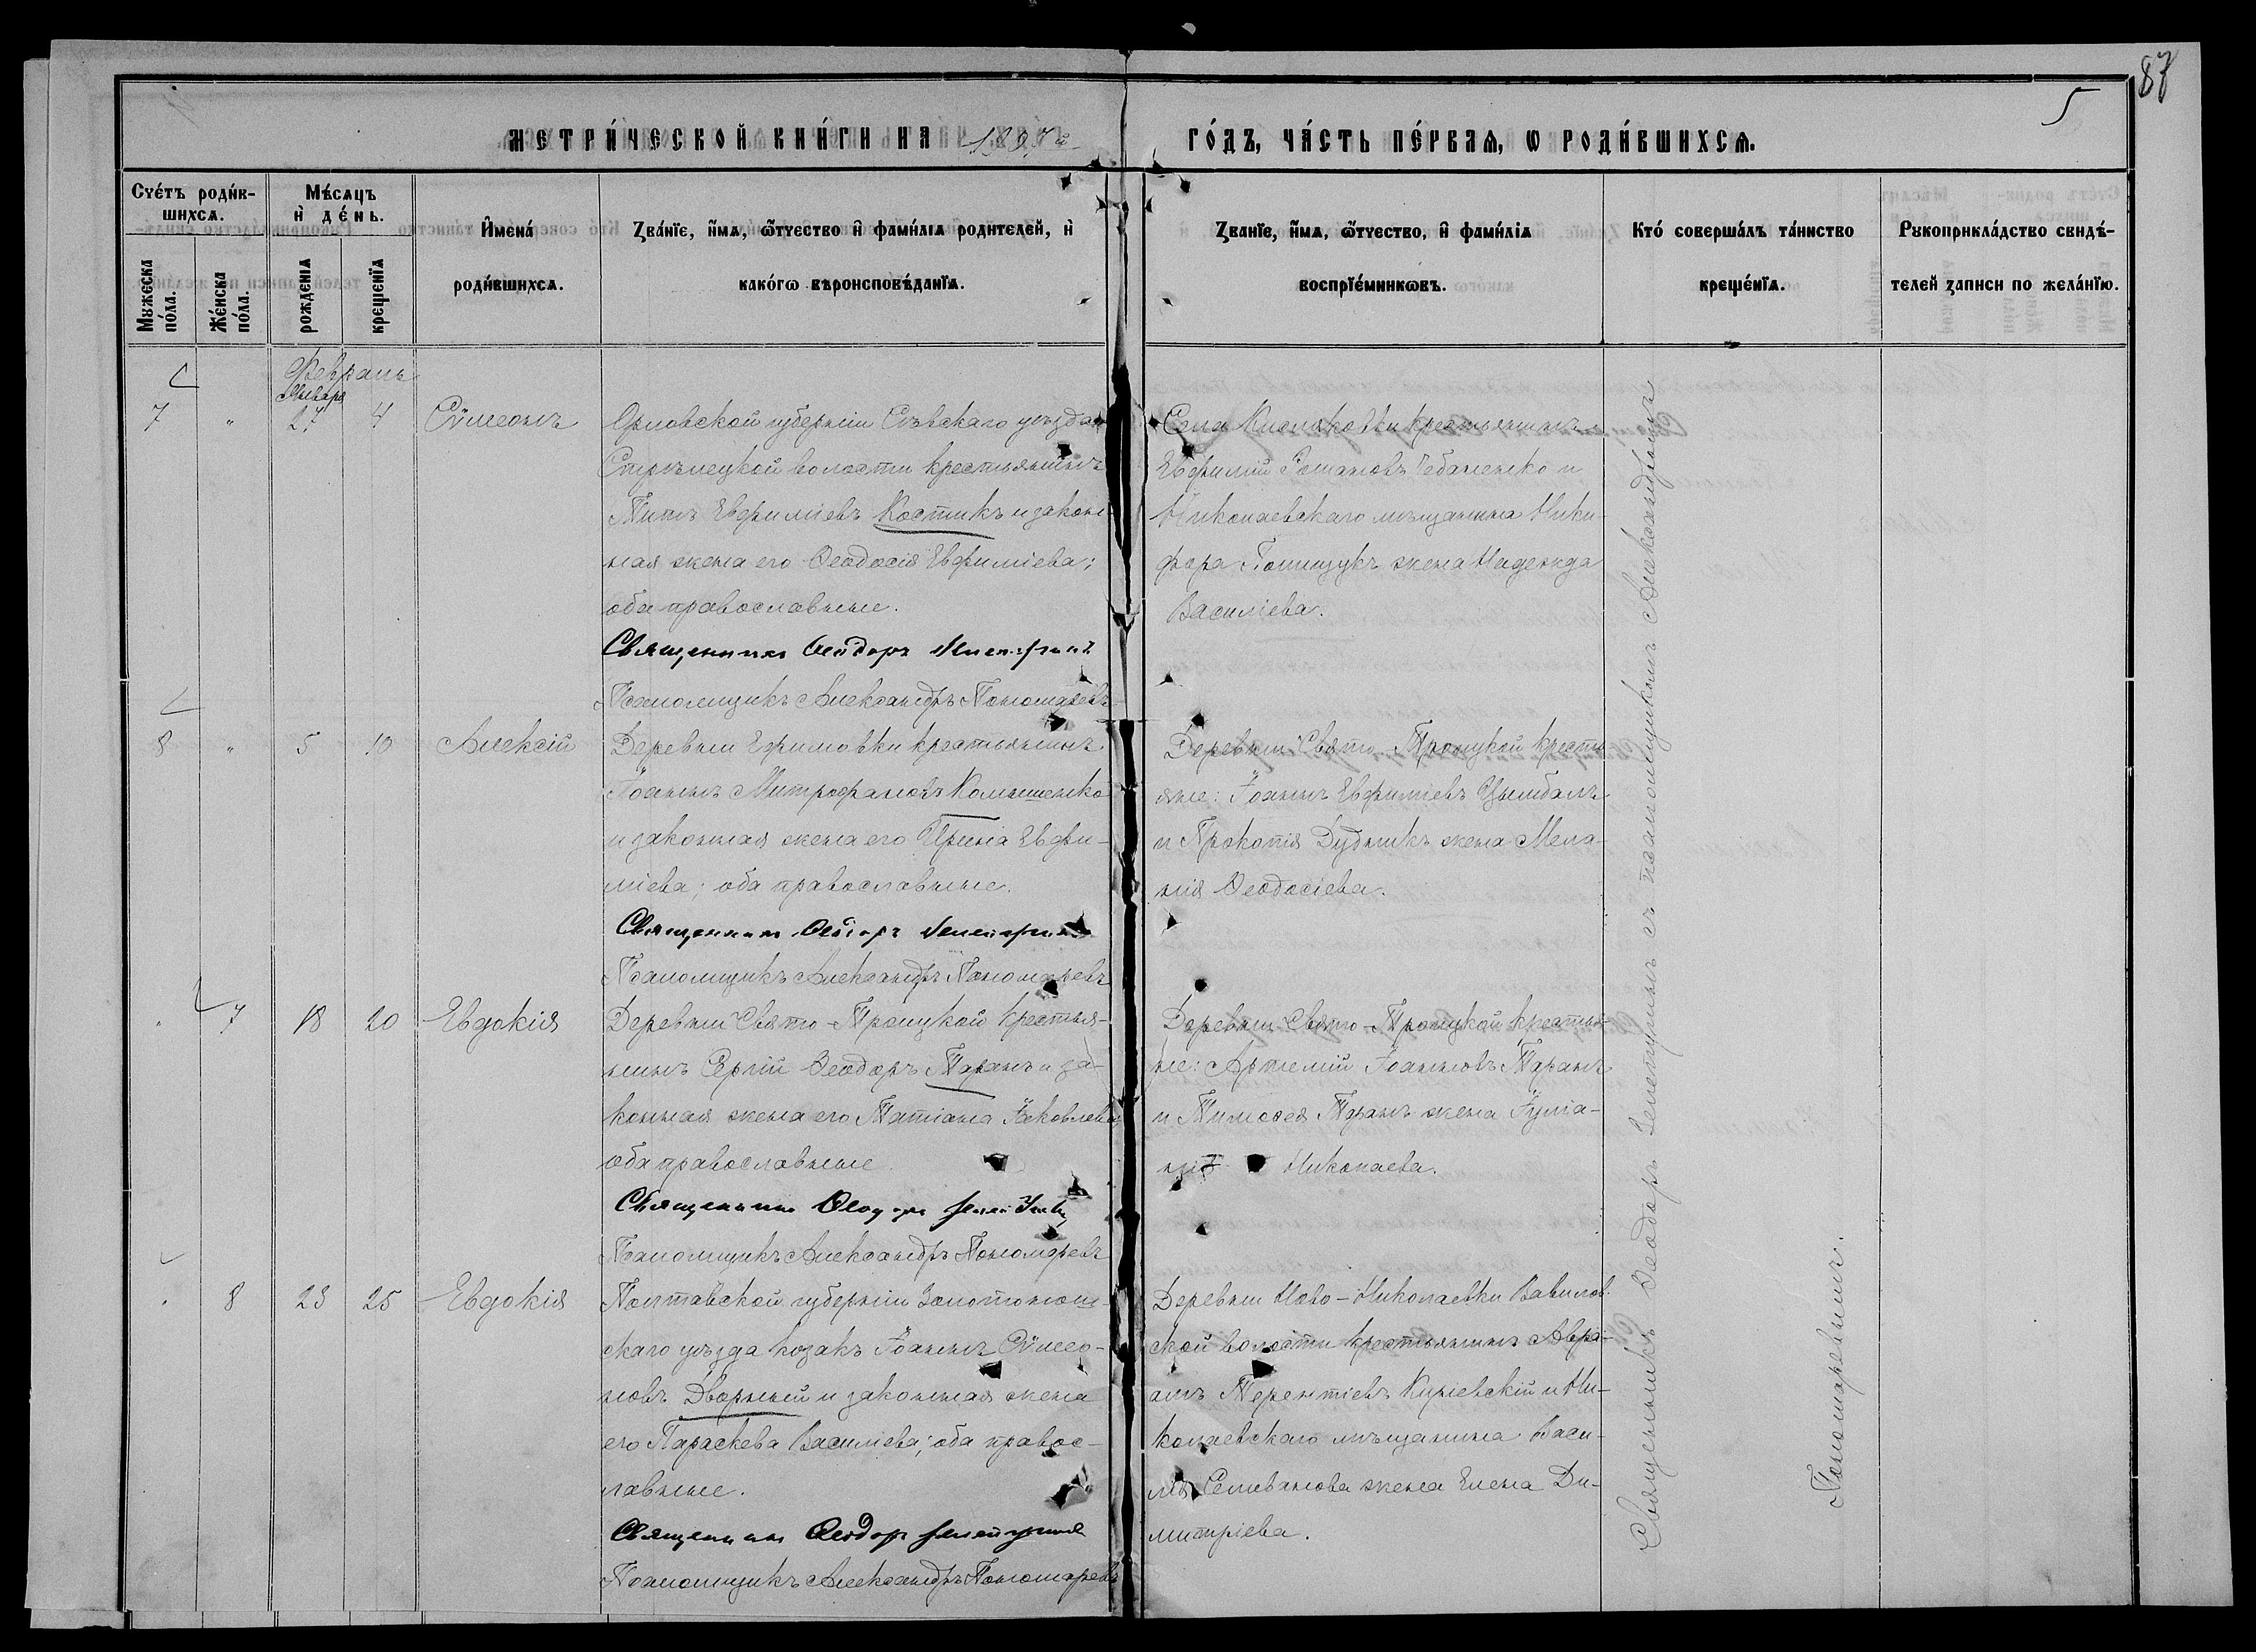 87
5
МЕТРИ́ЧЕСКОЙ КНИ́ГИ НА 1897й
ГО́ДЪ, ЧА́СТЬ ПЕ́РВАѦ, Ѡ РОДИ́ВШИХСѦ.
Счетъ роди́в-
шихсѧ.
Мꙋжеска по́ла.
Же́нска по́ла.
Мѣ́сѧцъ и де́нь.
рожденїѧ
крещенїѧ
И҆мена́ роди́вшихсѧ.
Зва́нїе, и҆́мѧ, ѻ҆́тчество и҆ фами́лїѧ родителей, и҆
како́гѡ вѣроисповѣ́данїѧ.
Зва́нїе, и҆́мѧ, ѻ҆́тчество, и҆ фами́лїѧ
воспрїе́мниковъ.
Кто́ соверша́лъ та́инство
креще́нїѧ.
Рꙋкоприкла́дство свидѣ́-
телей записи по жела́нїю.
Февраль
Января
7 " 27 4 Сѵмеонъ
Орловской губерніи Сѣвскаго уѣзда
Стрѣлецкой волости крестьянинъ
Титъ Евфиміевъ Костикъ и закон-
ная жена его Ѳеодосія Евфиміева;
оба православные.
Священникъ Ѳеодоръ
Псаломщикъ Александръ Пономаревъ
Села Кисляковки крестьянинъ
Евфимій Романовъ и
Николаевскаго мѣщанина Ники-
фора Полищукъ жена Надежда
Василіева.
8 " 5 10 Алексій
Деревни Ефимовки крестьянинъ
Іоаннъ Митрофановъ Комышенко
и законная жена его Ирина Евфи-
міева; оба православные.
Священникъ Ѳеодоръ
Псаломщикъ Александръ Пономаревъ
Деревни Свято-Троицкой кресть-
яне: Іоаннъ Евфиміевъ Цымбалъ
и Прокопія Дудникъ жена Мела-
нія Ѳеодосіева.
" 7 18 20 Евдокія
Деревни Свято-Троицкой крестья-
нинъ Сергій Ѳеодоръ Таранъ и за-
конная жена его Татіана Іаковлева
оба православные
Священникъ Ѳеодоръ
Псаломщикъ Александръ Пономаревъ
Деревни Свято-Троицкой крестья-
не: Артемій Іоанновъ Таранъ
и Тимоѳея Таранъ жена Іуліа-
нія Николаева.
" 8 23 25 Евдокія
Полтавской губерніи Золотонош-
скаго уѣзда козакъ Іоаннъ Сѵмео-
новъ Дворный и законная жена
его Параскева Василіева; оба правос-
лавные.
Священникъ Ѳеодоръ
Псаломщикъ Александръ Пономаревъ
Деревни Ново-Николаевки Вавилов-
ской волости крестьянинъ Авра-
амъ Терентіевъ Киріевскій и Ни-
колаевскаго мѣщанина Васи-
лія Селиванова жена Елена Ди-
митріева.
Священникъ Ѳеодоръ съ псаломщикомъ Александромъ
Пономаревымъ.